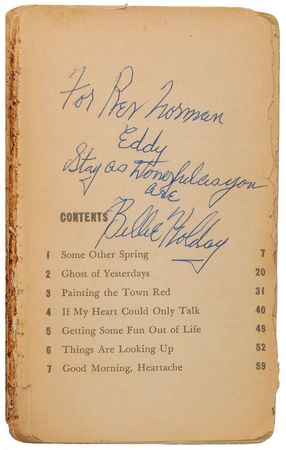 For Rev Norman
Eddy
Stay as Wonderful as you
are
Billie Holiday
CONTENTS
1 Some Other Spring 7
2 Ghost of Yesterdays 20
3 Painting the Town Red 31
4 If My Heart Could Only Talk 40
5 Getting Some Fun Out of Life 49
6 Things Are Looking Up 52
7 Good Morning, Heartache 59